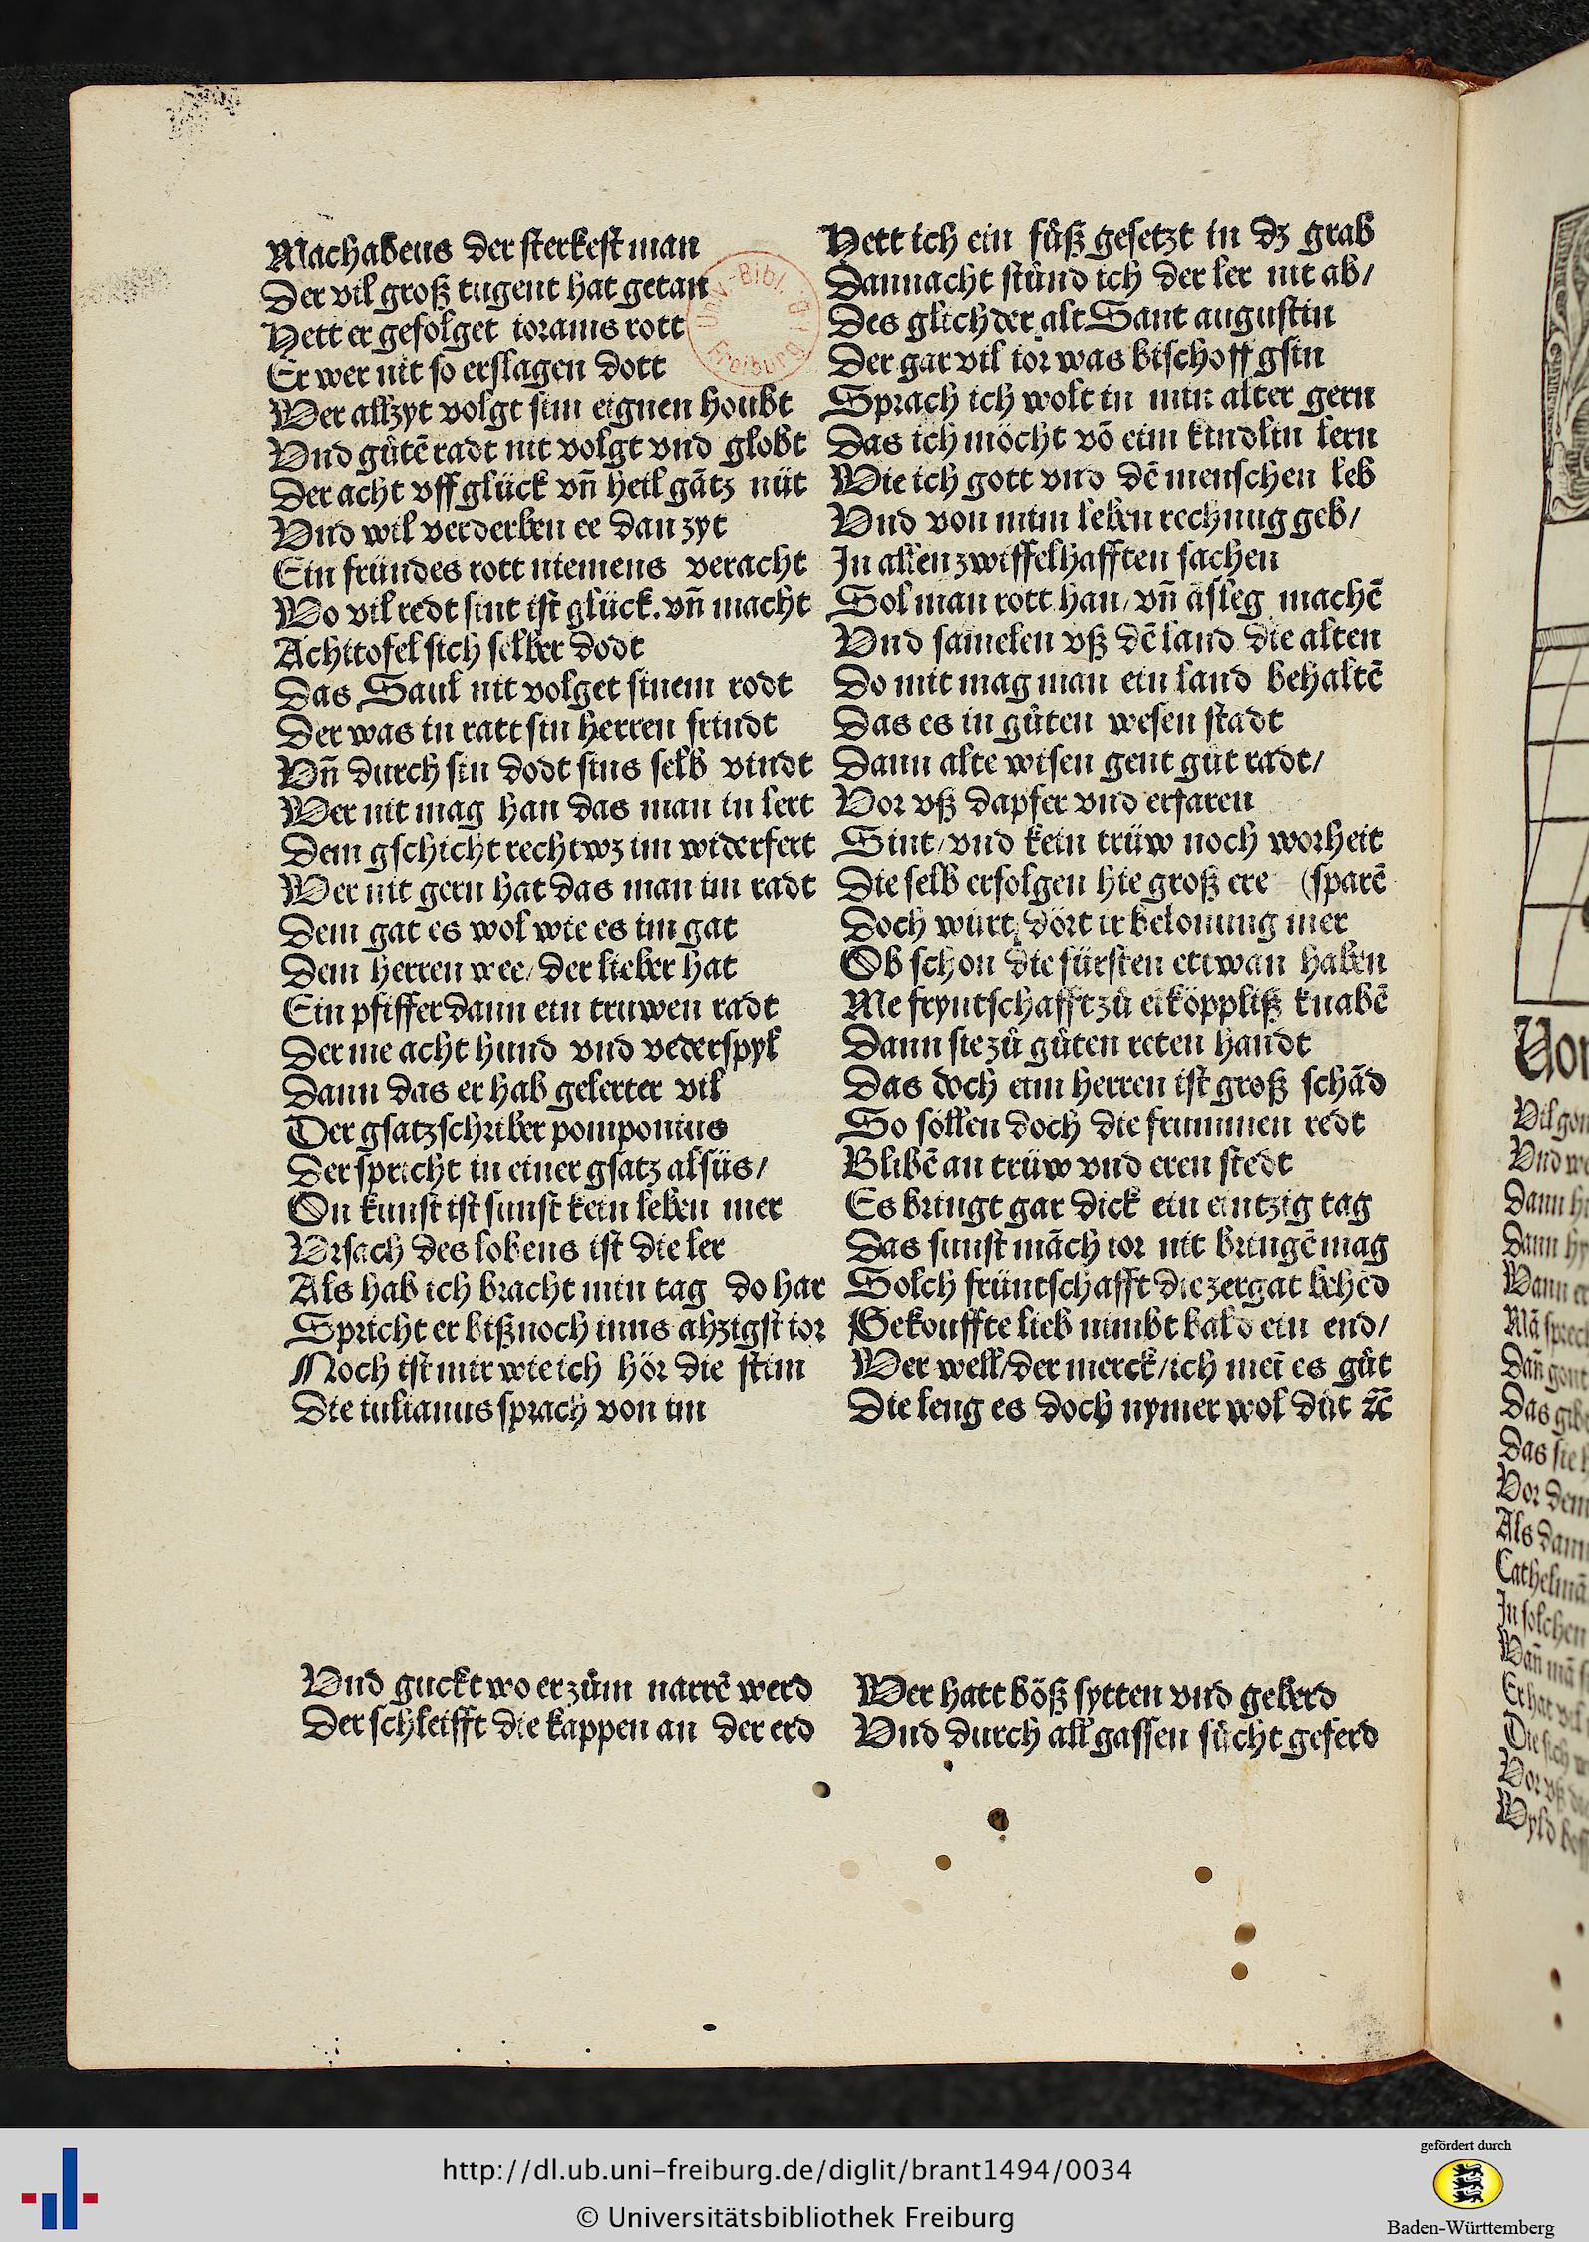 Machabeus der sterkest man
Der vil groß tugent hat getan
Hett er gefolget iorams rott
Er wer nit so erslagen dott
Wer allzyt volgt sim eignen houbt
Vnd gůtē radt nit volgt vnd globt
Der acht vff glück vñ heil gātz nüt
Vnd wil verderben ee dan zyt
Ein fründes rott niemens veracht
Wo vil redt sint ist glück. vñ macht
Achitofel sich selber dodt
Das Saul nit volget sinem rodt
Der was in ratt sin herren frindt
Vñ durch sin dodt sins selb vindt
Wer nit mag han das man in lert
Dem gschicht recht wz im widerfert
Wer nit gern hat das man im radt
Dem gat es wol wie es im gat
Dem herren wee/ der lieber hat
Ein pfiffer dann ein truwen radt
Der me acht hund vnd vederspyl
Dann das er hab gelerter vil
Der gsatzschriber pomponius
Der spricht in einer gsatz alsüs/
On kunst ist sunst kein leben mer
Vrsach des lobens ist die ler
Als hab ich bracht min tag do har
Spricht er biß noch inns ahzigst ior
Noch ist mir wie ich hör die stim
Die iulianus sprach von im
Hett ich ein fůß gesetzt in dz grab
Dannacht stůnd ich der ler nit ab/
Des glich der alt Sant augustin
Der gar vil ior was bischoff gsin
Sprach ich wolt in min alter gern
Das ich möcht vō eim kindlin lern
Wie ich gott vnd dē menschen leb
Vnd von mim leben rechnug geb/
In allen zwiffelhafften sachen
Sol man rott han/ vñ āsleg machē
Vnd samelen vß dē land die alten
Do mit mag man ein land behaltē
Das es in gůten wesen stadt
Dann alte wisen gent gůt radt/
Vor vß dapfer vnd erfaren
Sint/ vnd kein trüw noch worheit
Die selb erfolgen hie groß ere (sparē
Doch würt dört ir belonung mer
Ob schon die fürsten ettwan haben
Me fryntschafft zů eīköppliß knabē
Dann sie zů gůten reten handt
Das doch eim herren ist groß schād
So söllen doch die frummen redt
Blibē an trüw vnd eren stedt
Es bringt gar dick ein eintzig tag
Das sunst māch ior nit bringē mag
Solch früntschafft die zergat behēd
Gekouffte lieb nimbt bald ein end/
Wer well/ der merck/ ich mei es gůt
Die leng es doch nymer wol důt ⁊c̄
Vnd guckt wo er zům narrē werd
Der schleifft die kappen an der erd
Wer hatt böß sytten vnd geberd
Vnd durch all gassen sůcht geferd
Univ.-Bibl.
Freiburg
http://dl.ub.uni-freiburg.de/diglit/brant1494/0034
© Universitätsbibliothek Freiburg
gefördert durch
Baden-Württemberg